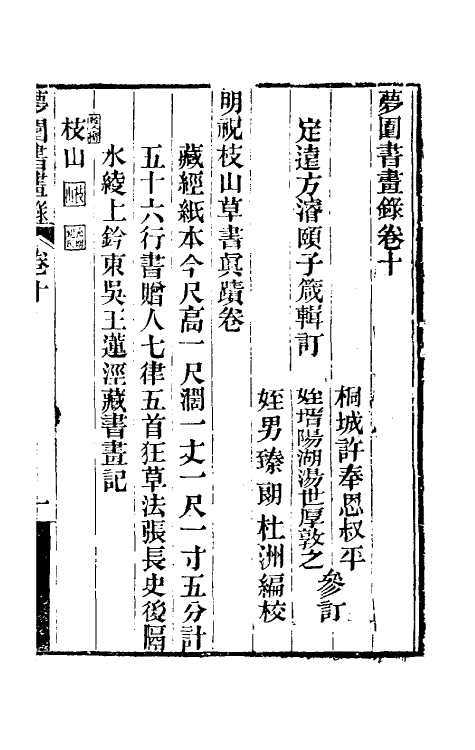 夢園書畫錄卷十
桐城許奉恩叔平
定遠方濬頤子箴輯訂
姪壻陽湖湯世厚敦之
參訂
姪男臻朗杜洲編校
明祝枝山草書眞蹟卷
藏經紙本今尺高一尺濶一丈一尺一寸五分計
五十六行書贈人七律五首狂草法張長史後隔
水綾上鈐東吳王蓮涇藏書畫記
枝山
夢園書畫錄
卷十
一